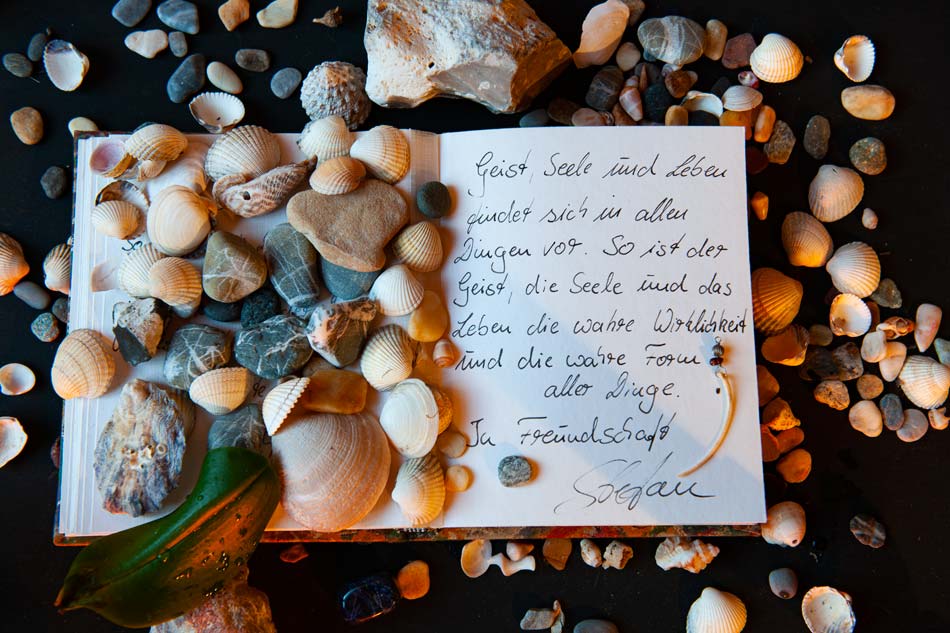 Geist, Seele und Leben
findet sich in allen
Dingen vor. So ist der
Geist, die Seele und das
Leben die wahre Wirklichkeit
und die wahre Form
aller Dinge.
In Freundschaft
Stefan